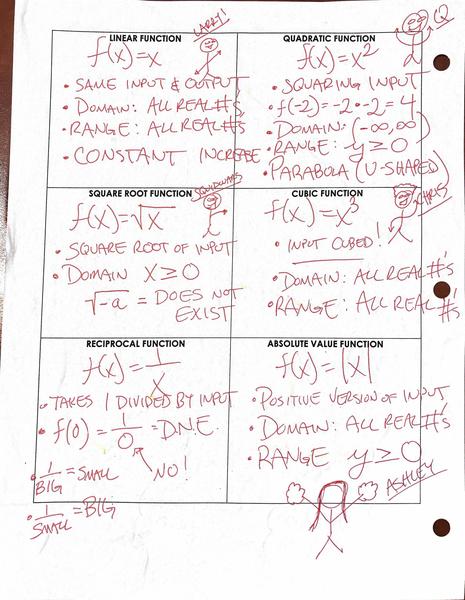 LINEAR FUNCTION
LARRY!
f(x)=x
• SAME INPUT & OUTPUT
• DOMAIN: ALL REAL #'S
• RANGE: ALL REAL #'S
• CONSTANT INCREASE
QUADRATIC FUNCTION
Q
f(x)=x²
• SQUARING INPUT
• f(-2)=-2•-2=4
• DOMAIN: (-∞,∞)
• RANGE: y≥0
• PARABOLA (U-SHAPED)
SQUARE ROOT FUNCTION
SQUIDWARD
f(x)=√x
• SQUARE ROOT OF INPUT
• DOMAIN X≥0
√-a = DOES NOT
EXIST
CUBIC FUNCTION
CHRIS
f(x)=x³
• INPUT CUBED!
• DOMAIN: ALL REAL #'S
• RANGE: ALL REAL #'S
RECIPROCAL FUNCTION
f(x)=1/X
• TAKES 1 DIVIDED BY INPUT
• f(0)=1/0=D.N.E.
NO!
• 1/BIG=SMALL
• 1/SMALL=BIG
ABSOLUTE VALUE FUNCTION
f(x)=|x|
• POSITIVE VERSION OF INPUT
• DOMAIN: ALL REAL #'S
• RANGE y≥0
ASHLEY